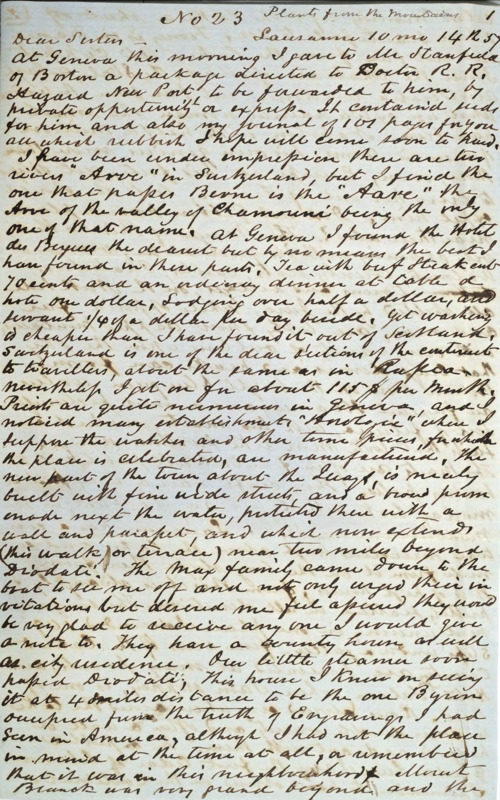 No 23 Plants from the Mountains 1
Dear Sister - Lausanne 10 mo 14th 57
At Geneva this morning I gave to Mr Stanfield
of Boston a package directed to Doctor R. R.
Hazard New Port, to be forwarded to him, by
private opportunity or express. It contained seeds
for him and also my journal of 101 pages for you
all which rubbish I hope will come soon to hand.
I have been under impression there are two
rivers "Arve" in Switzerland, but I find the
one that passes Berne is the "Aare" the
Arve of the valley of Chamouni being the only
one of that name. At Geneva I found the Hotel
des Bergues the dearest but by no means the best I
have found in these parts. Tea with beef steak cost
70 cents and an ordinary dinner at Table d
hote one dollar, Lodging over half a dollar, and
servant 1/4 of a dollar per day beside. Yet washing
is cheaper than I have found it out of Scotland,
Switzerland is one of the dear sections of the continent
to travellers, about the same as in Russia.
nevertheless I get on for about 115 $ per month.
Priests are quite numerous in Geneva, and I
noticed many establishments "Horlogie" where I
suppose the watches and other time pieces, for which
the place is celebrated, are manufactured. The
new part of the town, about the Quays, is nicely
built with fine wide streets and a broad prom
enade next the water, protected there with a
wall and parapet, and which now extends
(this walk or terrace) near two miles beyond
Diodati. The Max family came down to the
boat to see me off and not only urged their in
vitations but desired me feel assured they would
be very glad to receive any one I would give
a note to. They have a county house as well
as city residence. Our little steamer soon
passed Diodati, this house I knew on seeing
it at 4 miles distance to be the one Byron
occupied from the truth of Engravings I had
seen in America, although I had not the place
in mind at the time at all, or remembered
that it was in this neighborhood. Mount
Blanck was very grand beyond and the